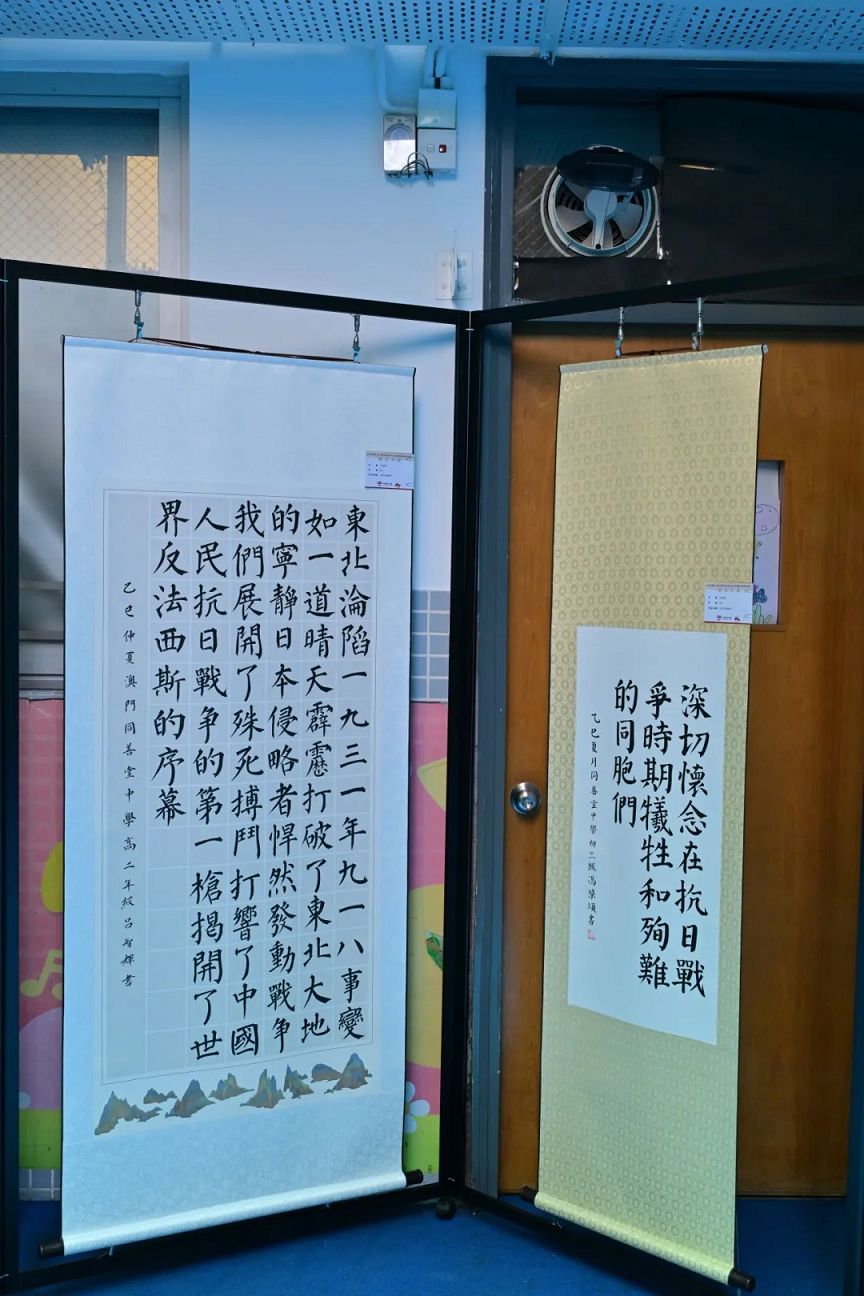 東北淪陷一九三一年九一八事變
如一道晴天霹靂打破了東北大地
的寧靜日本侵略者悍然發動戰爭
我們展開了殊死搏鬥打響了中國
人民抗日戰争的第一槍揭開了世
界反法西斯的序幕
乙巳仲夏澳門同善堂中學高二年級呂智輝書
深切懷念在抗日戰
爭時期犧牲和殉難
的同胞們
乙巳夏月同善堂中學初三級馮榮頌書